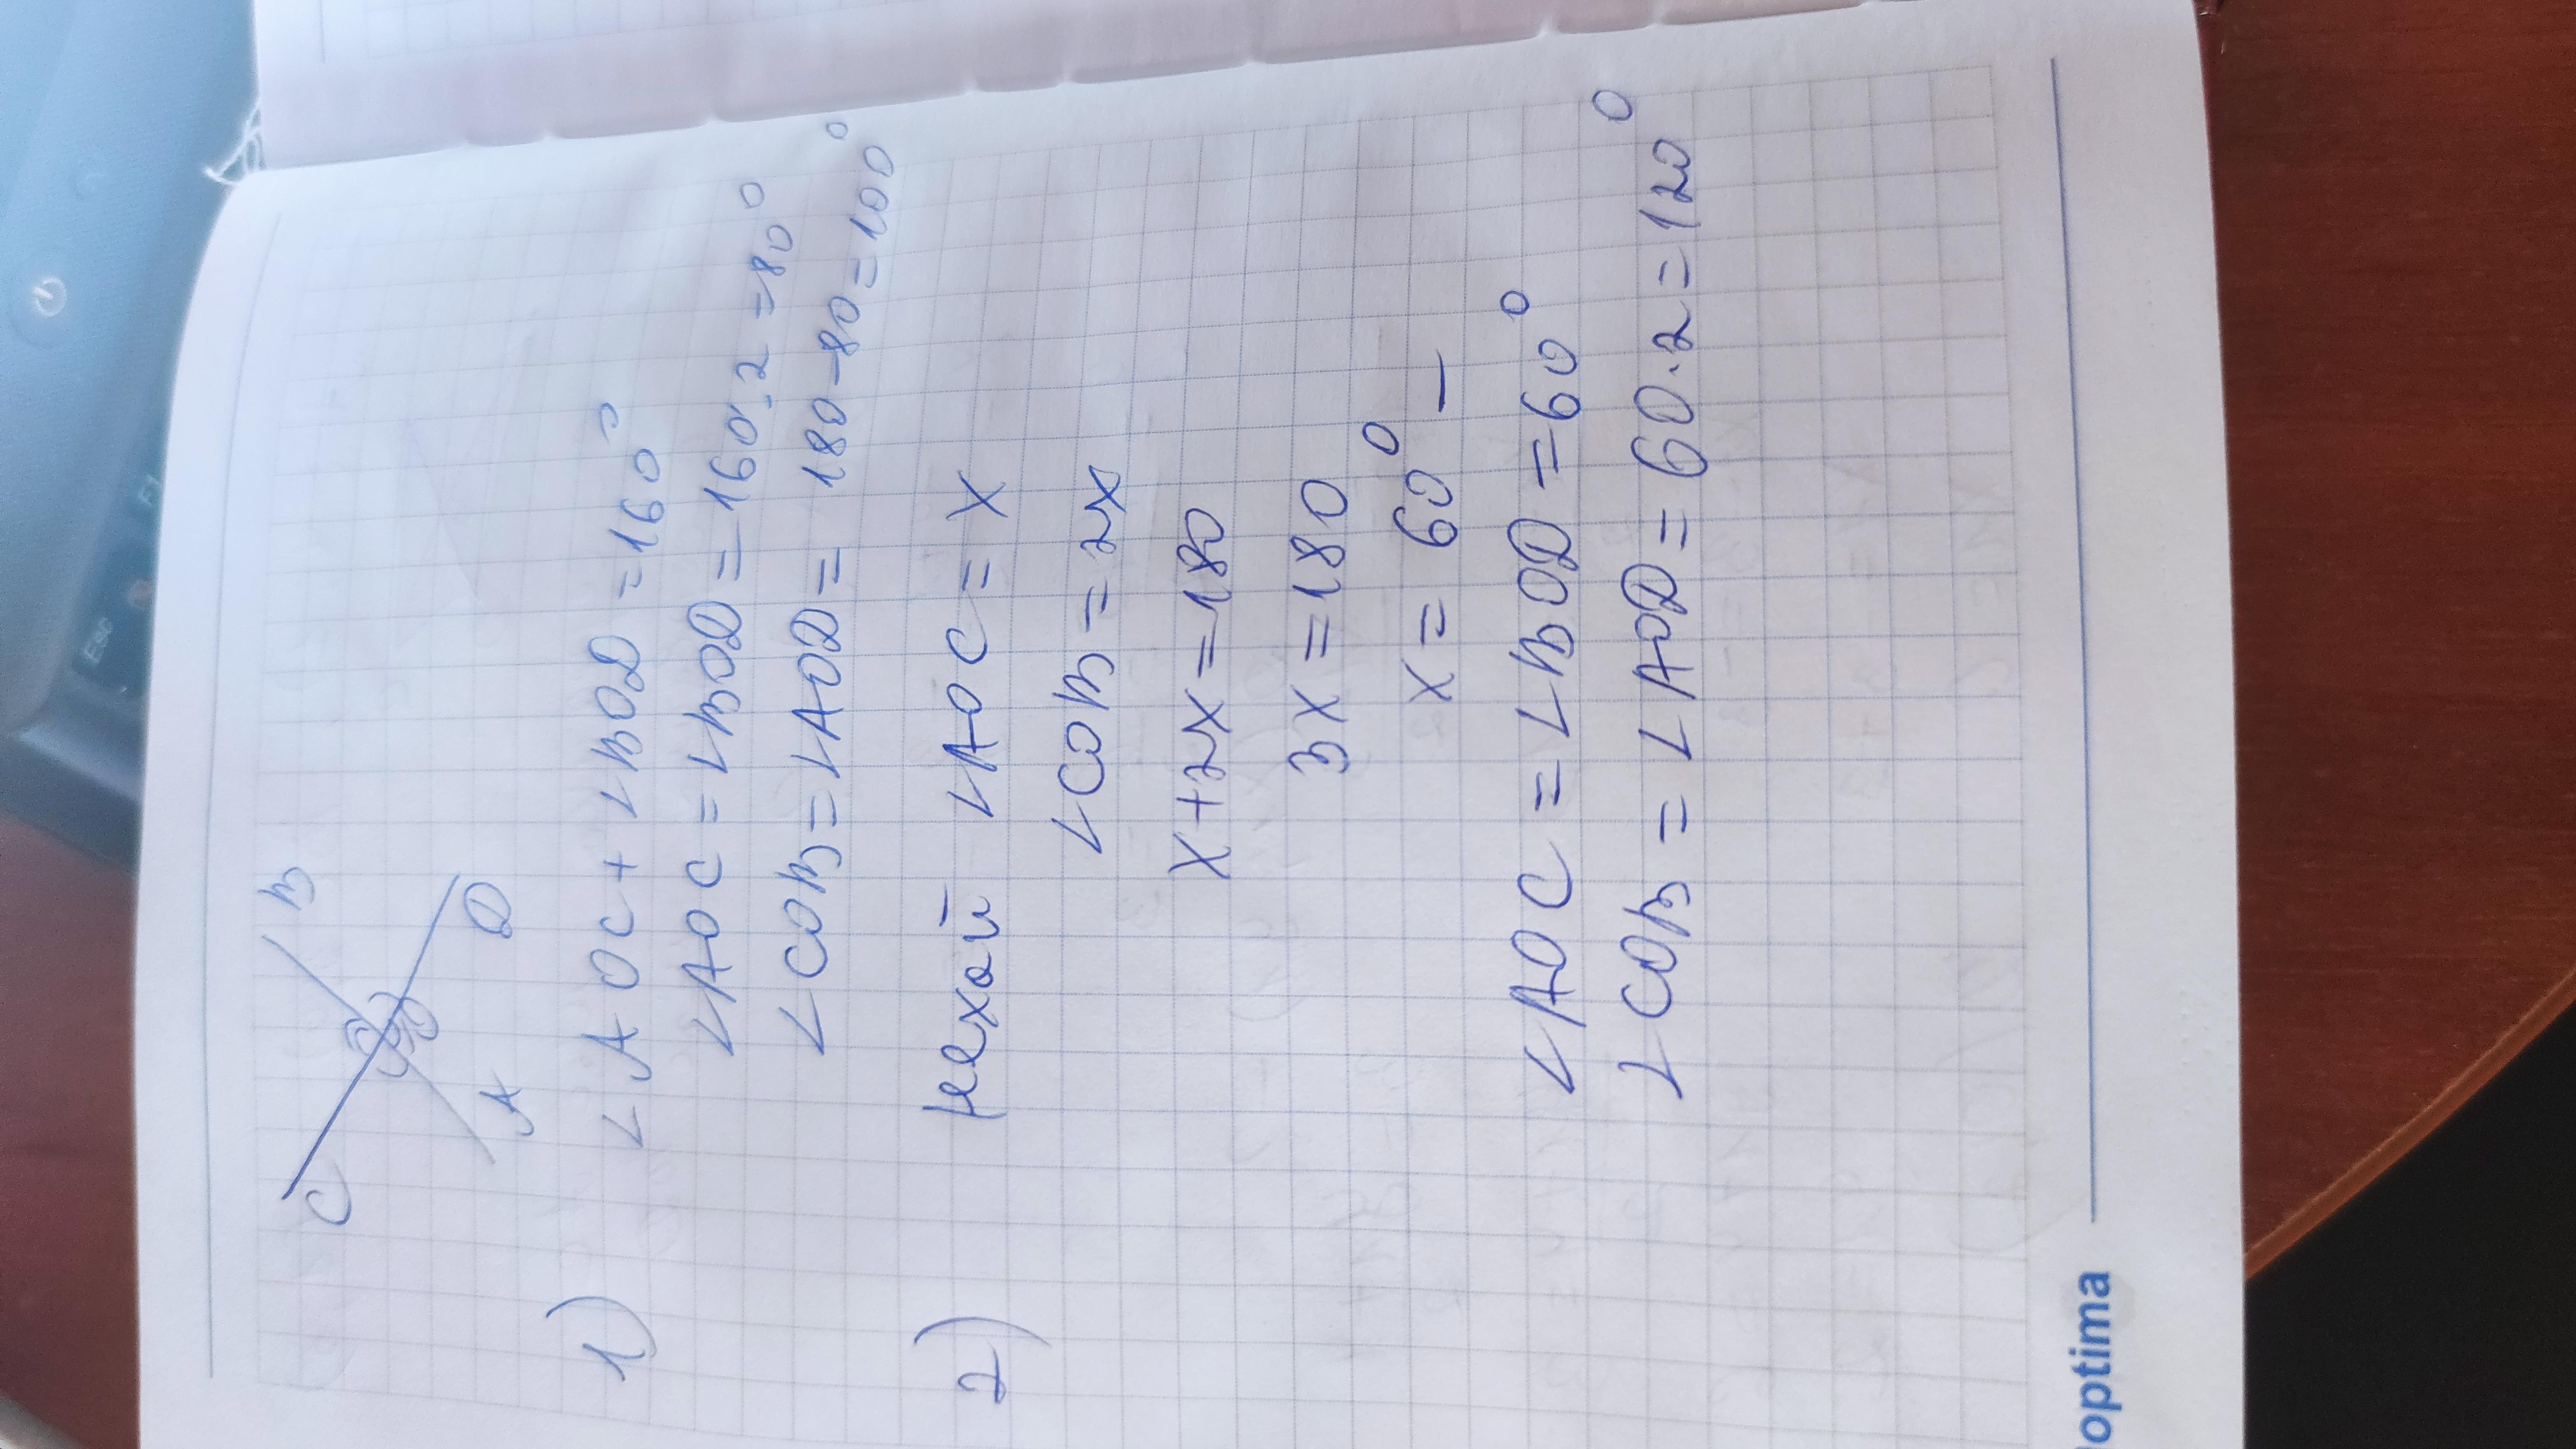 C B
A D
1) ∠AOC + ∠BOD = 160°
∠AOC = ∠BOD = 160:2 = 80°
∠COB = ∠AOD = 180-80 = 100°
2) Нехай ∠AOC = x
∠COB = 2x
x+2x = 180
3x = 180
x = 60° –
∠AOC = ∠BOD = 60°
∠COB = ∠AOD = 60·2 = 120°
optima
Esc
F1